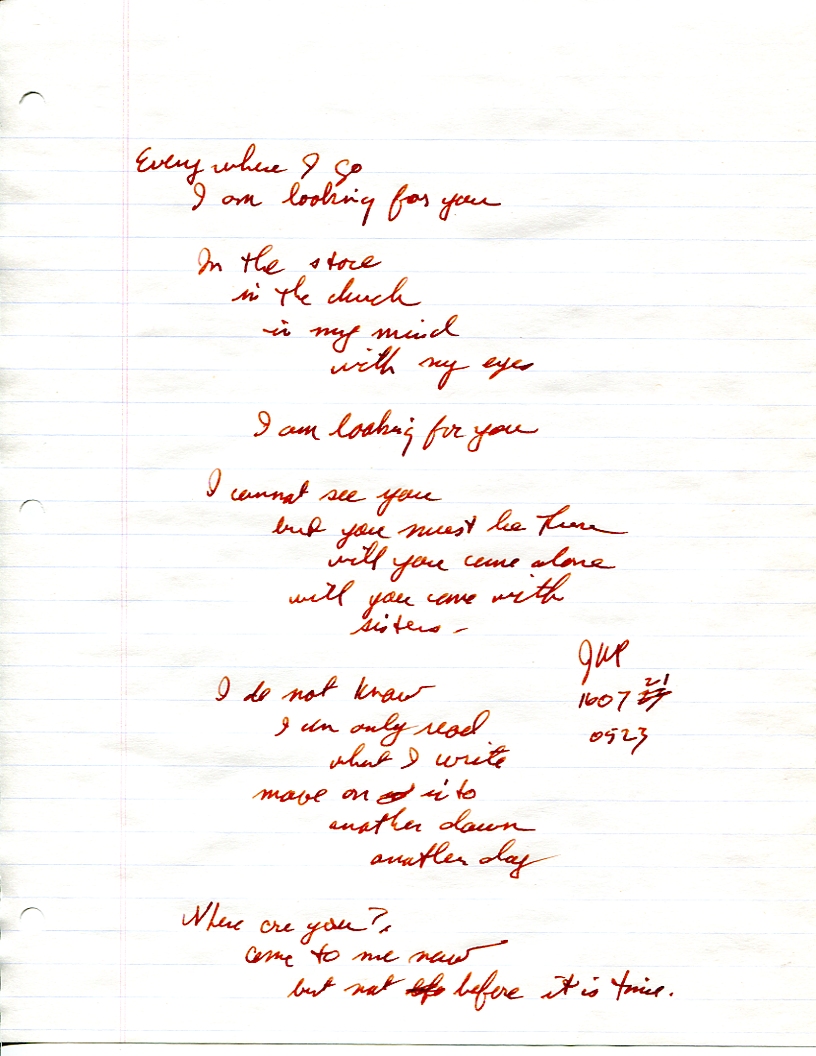 Everywhere I go
I am looking for you
In the store
in the church
in my mind
with my eyes
I am looking for you
I cannot see you
but you must be there
will you come alone
will you come with
sisters -
JWP
160721
0523
I do not know
I can only read
what I write
move on into
another dawn
another day
Where are you?
come to me now
but not before it is time.